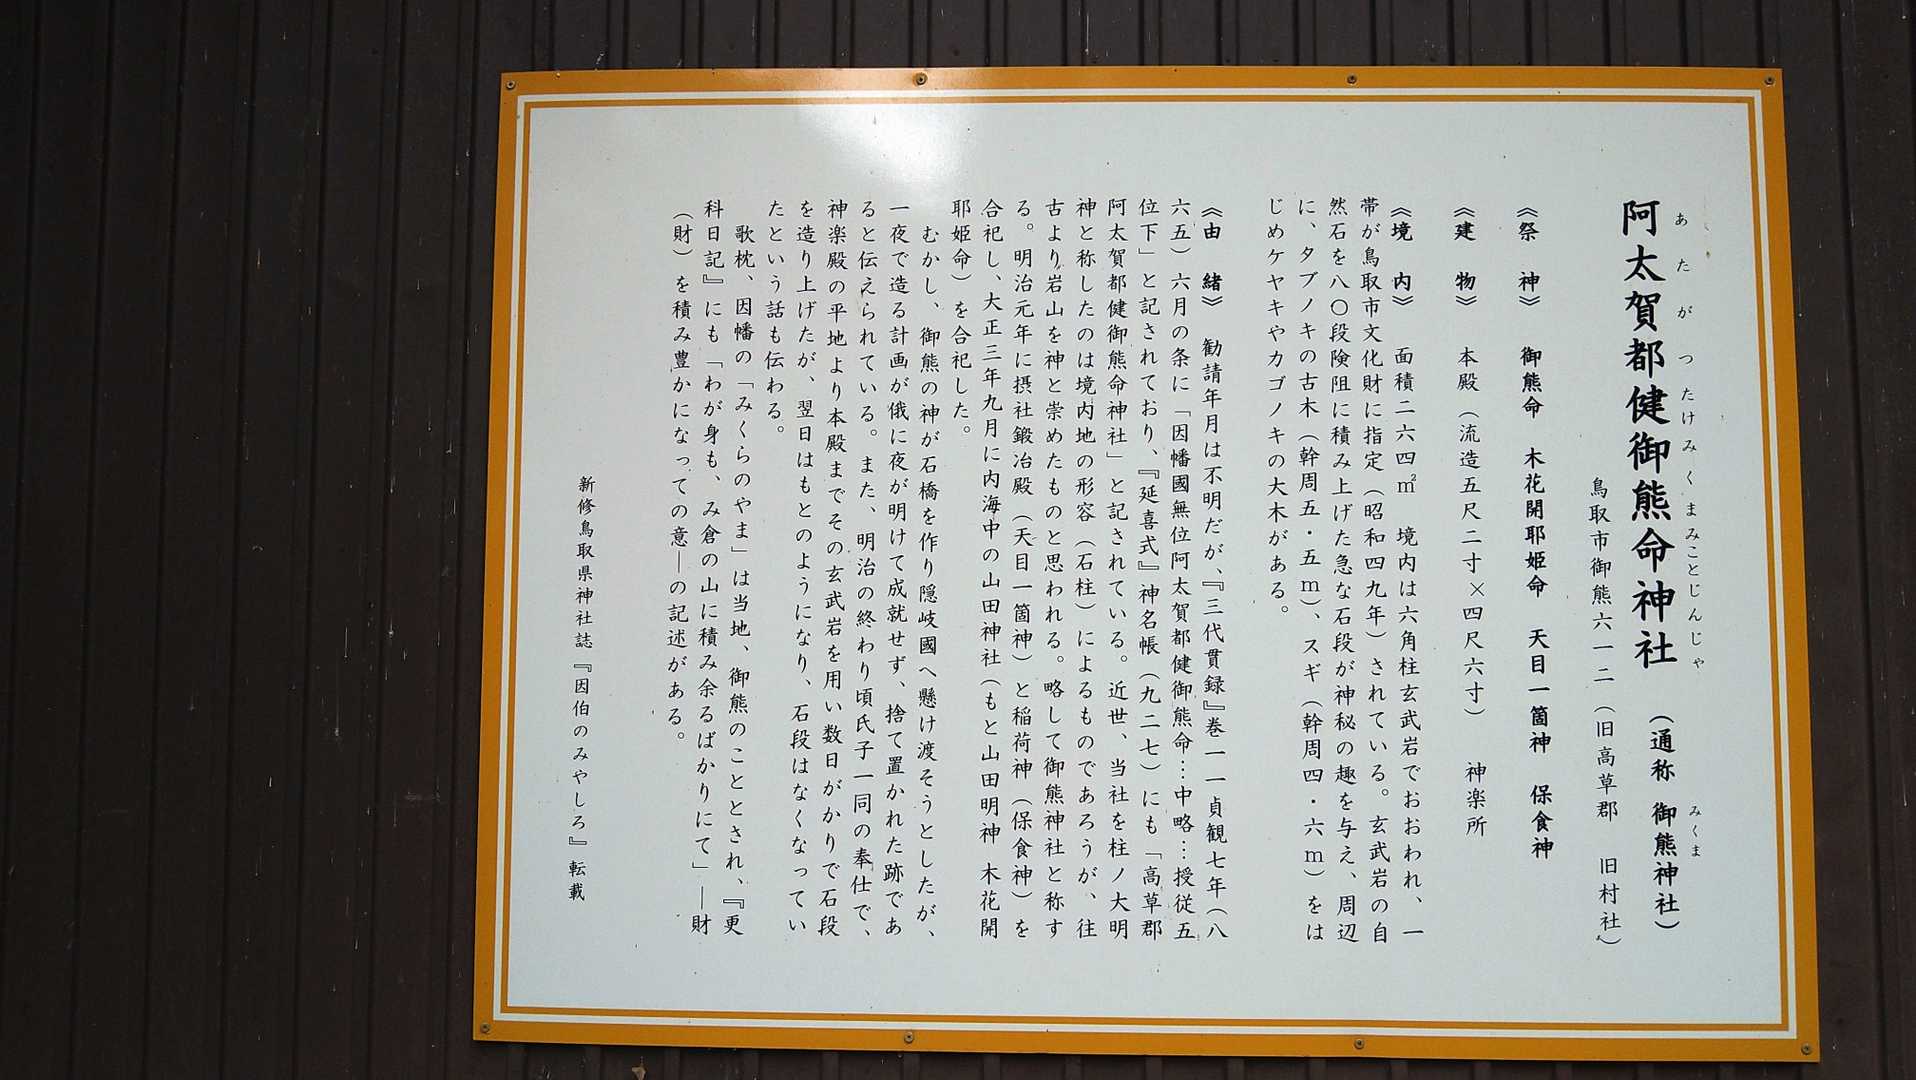 あたがつたけみくまみことじんじゃ
阿太賀都健御熊命神社（通称 御熊神社）
みくま
鳥取市御熊六一二（旧高草郡 旧村社）
《祭 神》 御熊命 木花開耶姫命 天目一箇神 保食神
《建 物》 本殿（流造五尺二寸×四尺六寸） 神楽所
《境 内》 面積二六四㎡ 境内は六角柱玄武岩でおおわれ、一
帯が鳥取市文化財に指定（昭和四九年）されている。玄武岩の自
然石を八〇段険阻に積み上げた急な石段が神秘の趣を与え、周辺
に、タブノキの古木（幹周五・五ｍ）、スギ（幹周四・六ｍ）をは
じめケヤキやカゴノキの大木がある。
《由 緒》 勧請年月は不明だが、『三代貫録』巻一一貞観七年（八
六五）六月の条に「因幡國無位阿太賀都健御熊命…中略…授従五
位下」と記されており、『延喜式』神名帳（九二七）にも「高草郡
阿太賀都健御熊命神社」と記されている。近世、当社を柱ノ大明
神と称したのは境内地の形容（石柱）によるものであろうが、往
古より岩山を神と崇めたものと思われる。略して御熊神社と称す
る。明治元年に摂社鍛冶殿（天目一箇神）と稲荷神（保食神）を
合祀し、大正三年九月に内海中の山田神社（もと山田明神 木花開
耶姫命）を合祀した。
むかし、御熊の神が石橋を作り隠岐國へ懸け渡そうとしたが、
一夜で造る計画が俄に夜が明けて成就せず、捨て置かれた跡であ
ると伝えられている。また、明治の終わり頃氏子一同の奉仕で、
神楽殿の平地より本殿までその玄武岩を用い数日がかりで石段
を造り上げたが、翌日はもとのようになり、石段はなくなってい
たという話も伝わる。
歌枕、因幡の「みくらのやま」は当地、御熊のこととされ、『更
科日記』にも「わが身も、み倉の山に積み余るばかりにて」―財
（財）を積み豊かになっての意―の記述がある。
新修鳥取県神社誌『因伯のみやしろ』転載